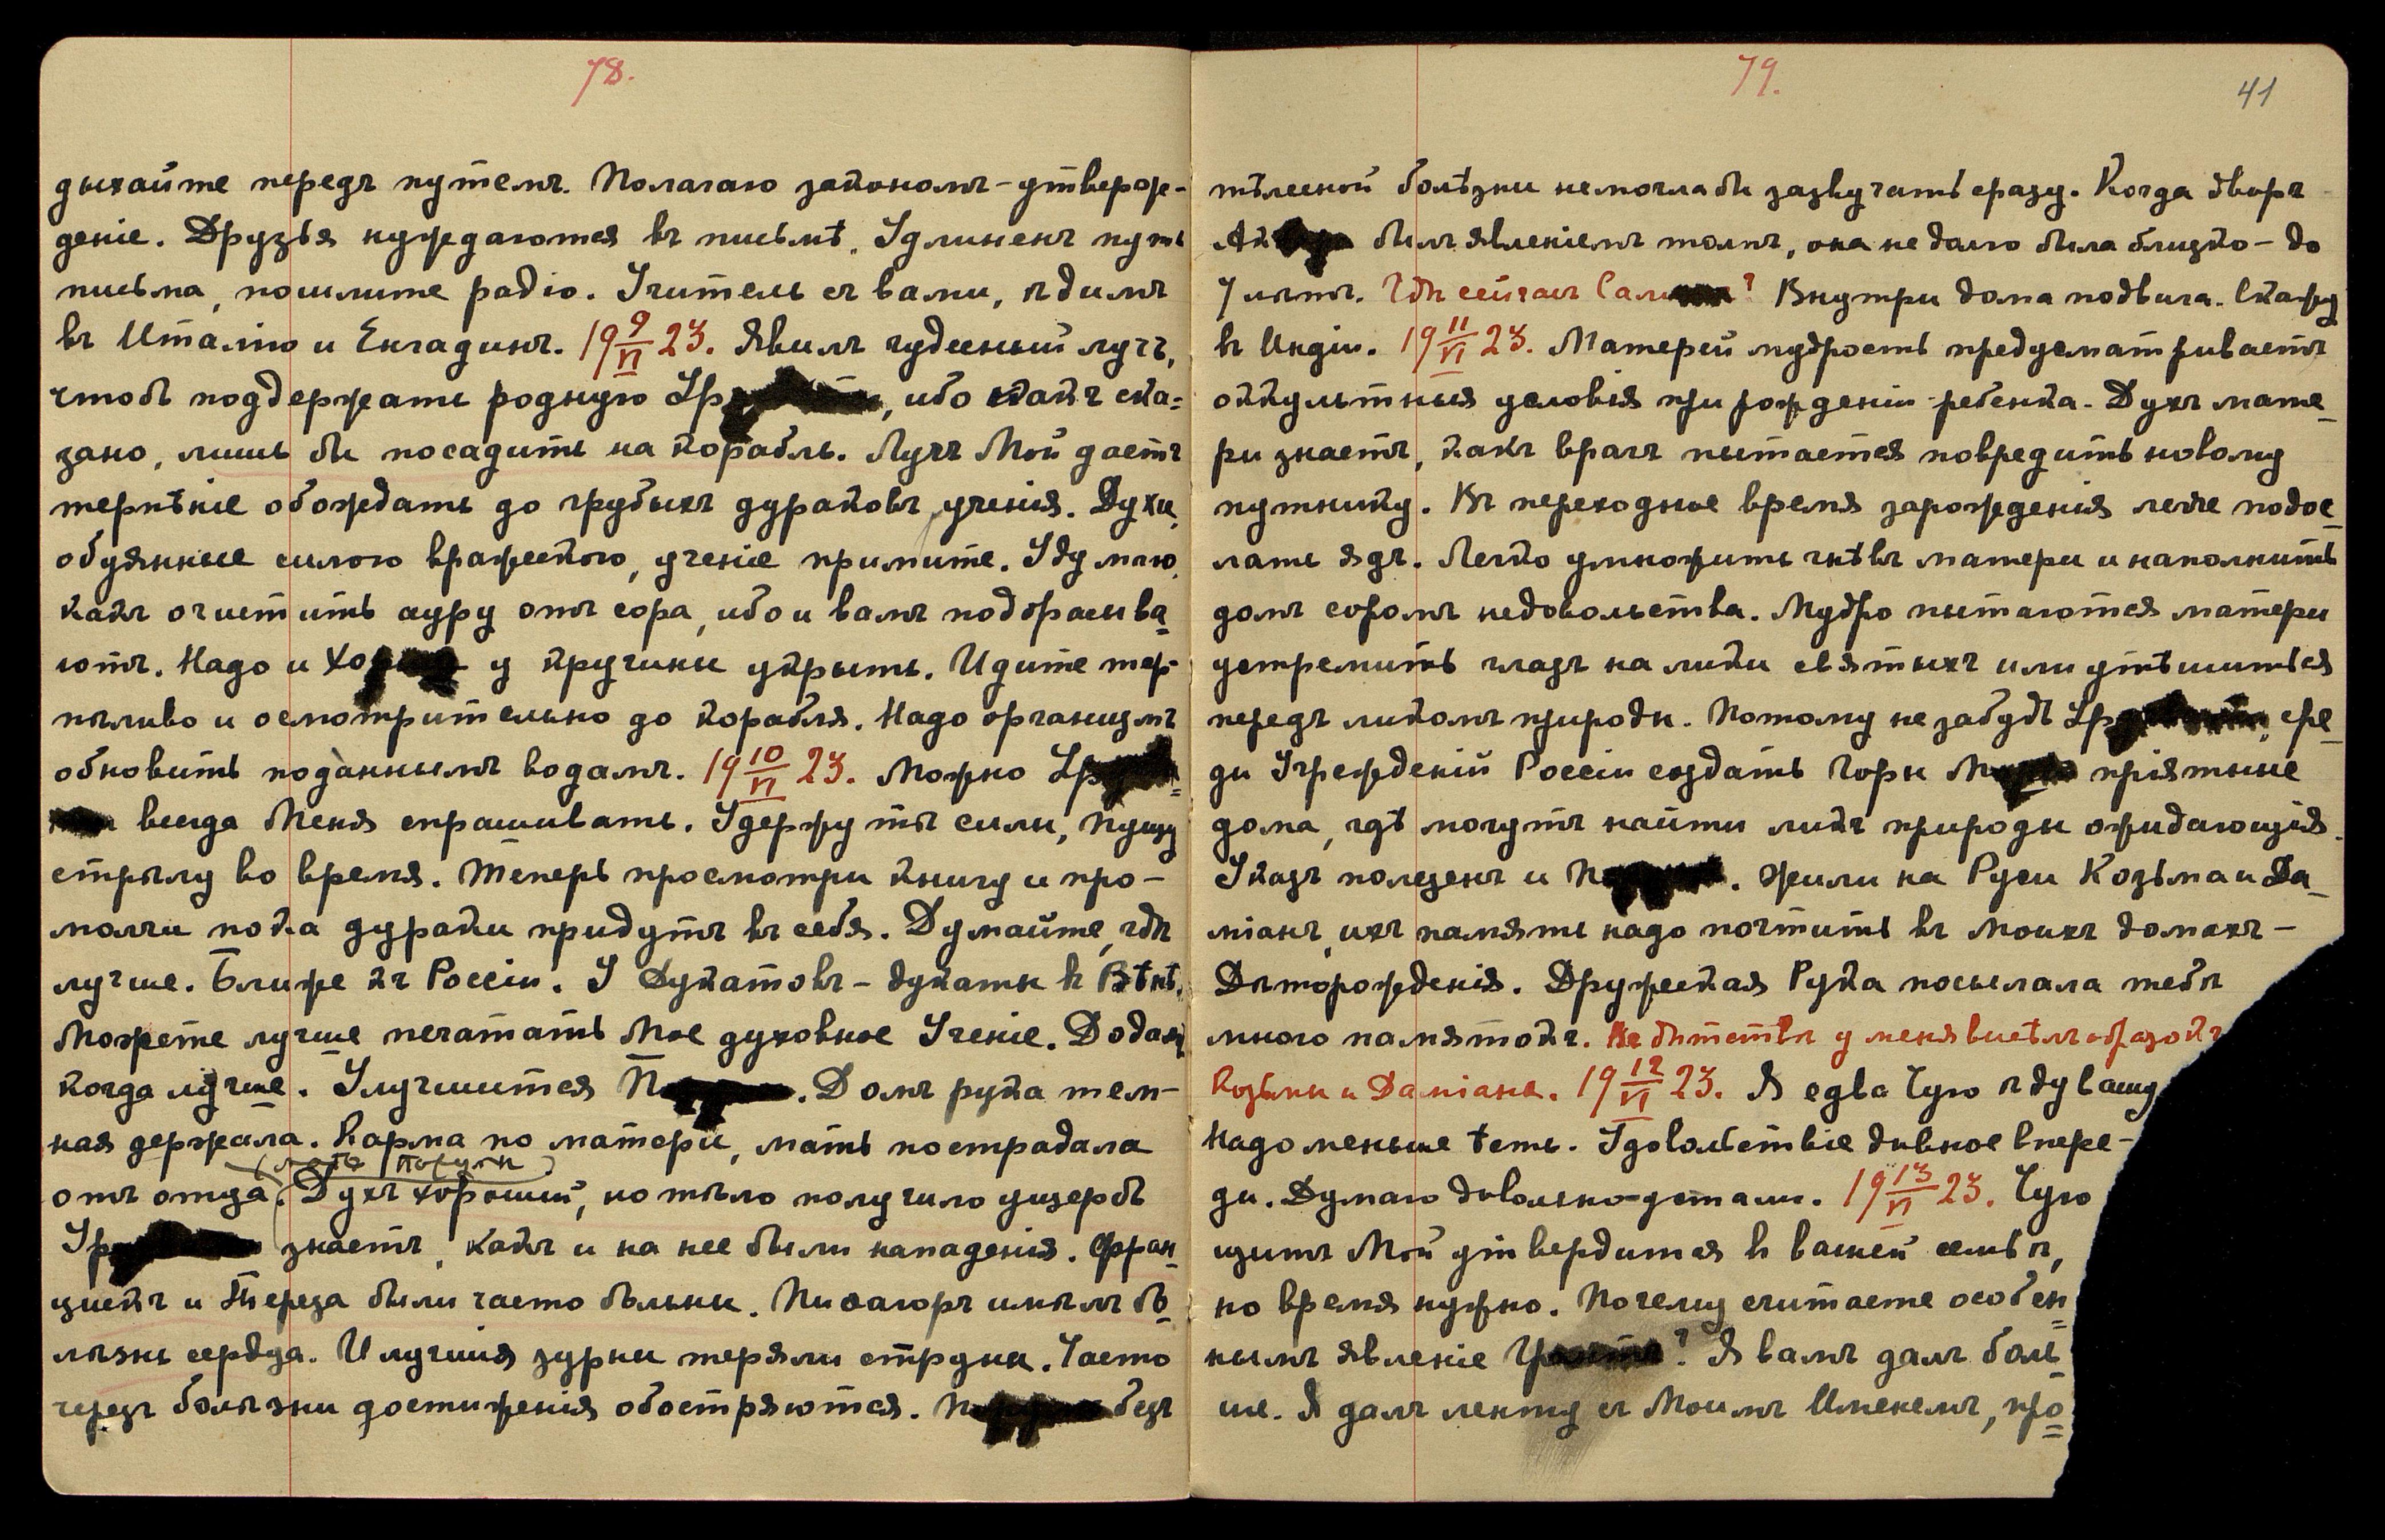 78.
дыхайте передъ путемъ. Полагаю закономъ-утверж-
деніе. Друзья нуждаются въ письмѣ. Удлиненъ путь
письма, пошлите радіо. Учитель съ вами, ѣдимъ
въ Италію и Енгадинъ. 19 9/VI 23. Явилъ чудесный лучъ,
чтобъ поддержать родную Ур, ибо какъ ска=
зано, лишь бы посадить на корабль. Лучъ Мой даетъ
терпѣніе обождать до грубыхъ дураковъ ученія. Духи,
обуянные силою вражескою, ученіе примите. Удумаю,
какъ очистить ауру отъ сора, ибо и вамъ подбрасыва-
ютъ. Надо и Хо у кручины укрыть. Идите тер-
пѣливо и осмотрительно до корабля. Надо организмъ
обновить поданнымъ водамъ. 19 10/VI 23. Можно Ур
всегда Меня спрашивать. Удержу тѣ силы, пущу
стрѣлу во время. Теперь просмотри книгу и про-
молчи пока дураки придутъ въ себя. Думайте, гдѣ
лучше. Ближе къ Россіи. У Дукатовъ - дукаты в Вѣнѣ.
Можете лучше печатать Мое духовное Ученіе. Додамъ
когда лучше. Улучшится П. Домъ рука тем-
ная держала. Карма по матери, мать пострадала
(мать Поруми)
отъ отца. Духъ хорошій, но тѣло получило ущербъ
Ур знаетъ, какъ и на нее были нападенія. Фран-
цискъ и Тереза были часто больны. Пиѳагоръ имѣлъ бо-
лѣзнь сердца. И лучшія зурны теряли струны. Часто
черезъ болѣзни достиженія обостряются. П безъ
79.
41
тѣлесной болѣзни не могла бы зазвучать сразу. Когда дворъ
Ак былъ явленіемъ толпъ, она не дало была близко - до
7 лѣтъ. Гдѣ сейчасъ Сал? Внутри дома подвига. Скажу
въ Индіи. 19 11/VI 23. Матерей мудрость предусматриваетъ
оккультныя условія при рожденіи ребенка. Духъ мате-
ри знаетъ, какъ врагъ пытается повредить новому
путнику. Въ переходное время зарожденія легче подос-
лать ядъ. Легко умножить гнѣвъ матери и наполнить
домъ соромъ недовольства. Мудро пытаются матери
устремить глазъ на лики святыхъ или утѣшиться
передъ ликомъ природы. Потому не забудь Ур, сре-
ди Учрежденій Россіи создать Горы М пріятные
дома, гдѣ могутъ найти ликъ природы ожидающія.
Указъ полезенъ и П. Жили на Руси Козьма и Да-
міанъ, ихъ память надо почтить въ Моихъ домахъ -
Дѣторожденія. Дружеская Рука посылала тебѣ
много памятокъ. Въ дѣтствѣ у меня висѣлъ образокъ
Козьмы и Даміана. 19 12/VI 23. Я едва Чую ѣду вашу
Надо меньше ѣсть. Удовольствіе дивное впере-
ди. Думаю довольно-устали. 19 13/VI 23. Чую
щитъ Мой утвердится в вашей семьѣ,
но время нужно. Почему считаете особен=
нымъ явленіе ? Я вамъ далъ боль
ше. Я далъ ленту съ Моимъ Именемъ, про=